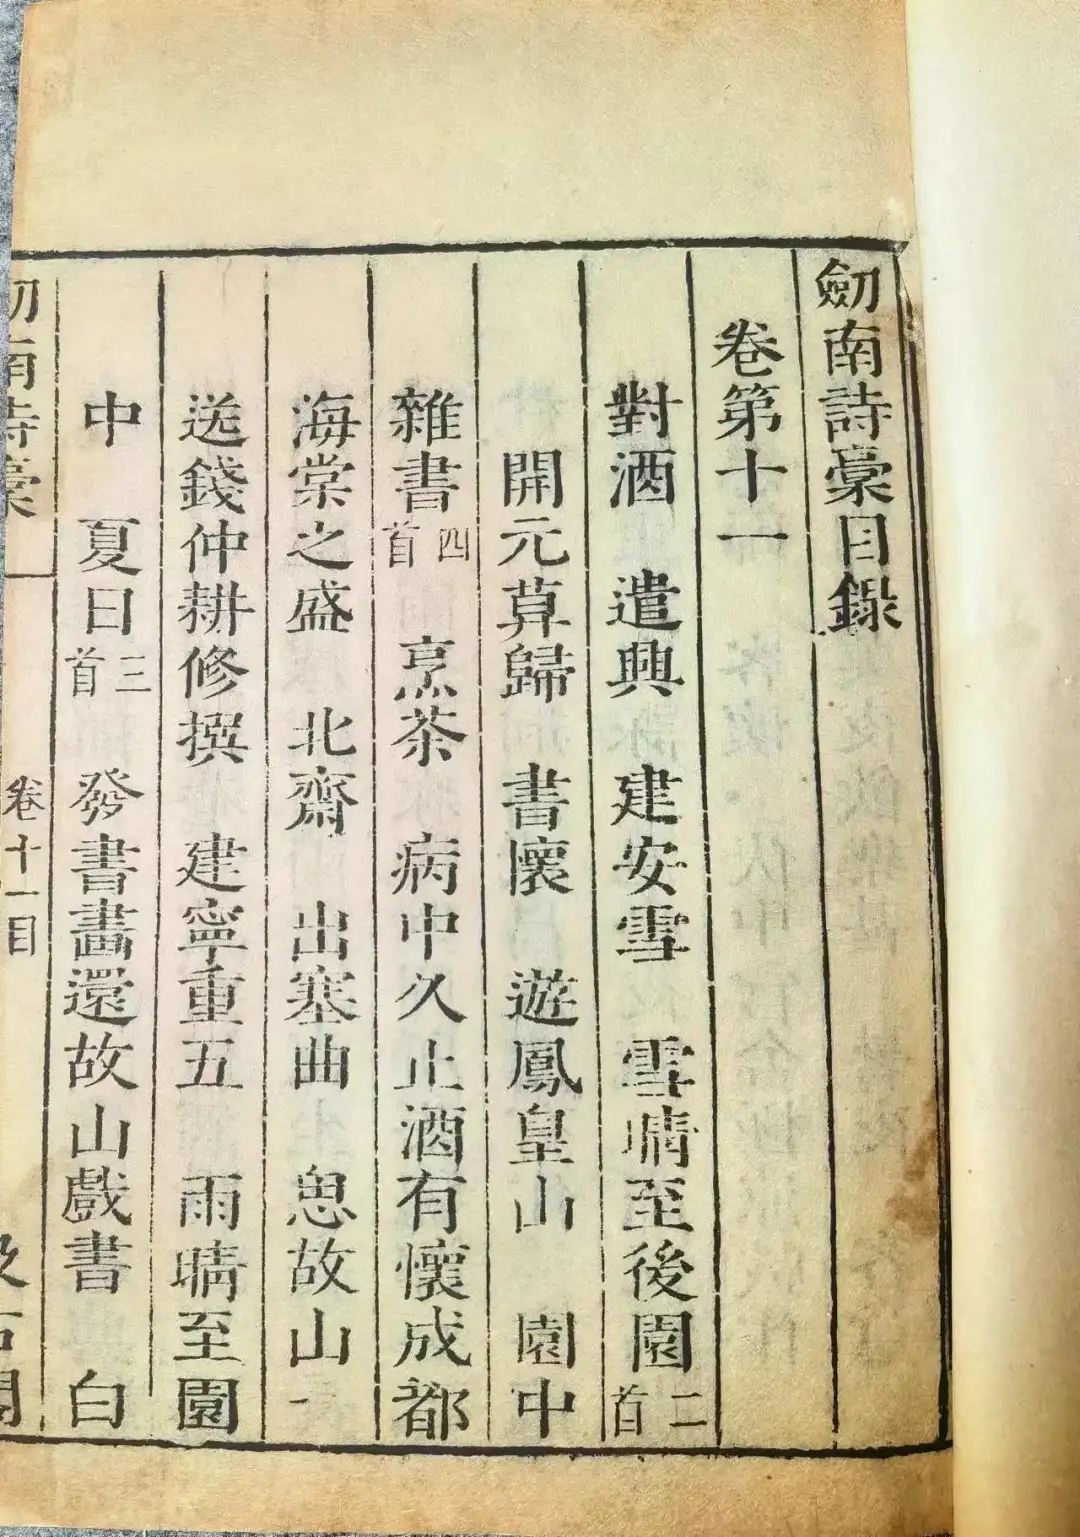 劒南詩稾目錄
卷第十一
對酒 遣興 建安雪 雪晴至後園二首
開元草歸 書懷 遊鳳皇山 園中
雜書四首 烹茶 病中久止酒有懷成都
海棠之盛 北齋 出塞曲 思故山一
送錢仲耕修撰 建寧重五 雨晴至園
中 夏日三首 發書畵還故山戲書 白
劒南詩稾 卷十一目 汲古閣